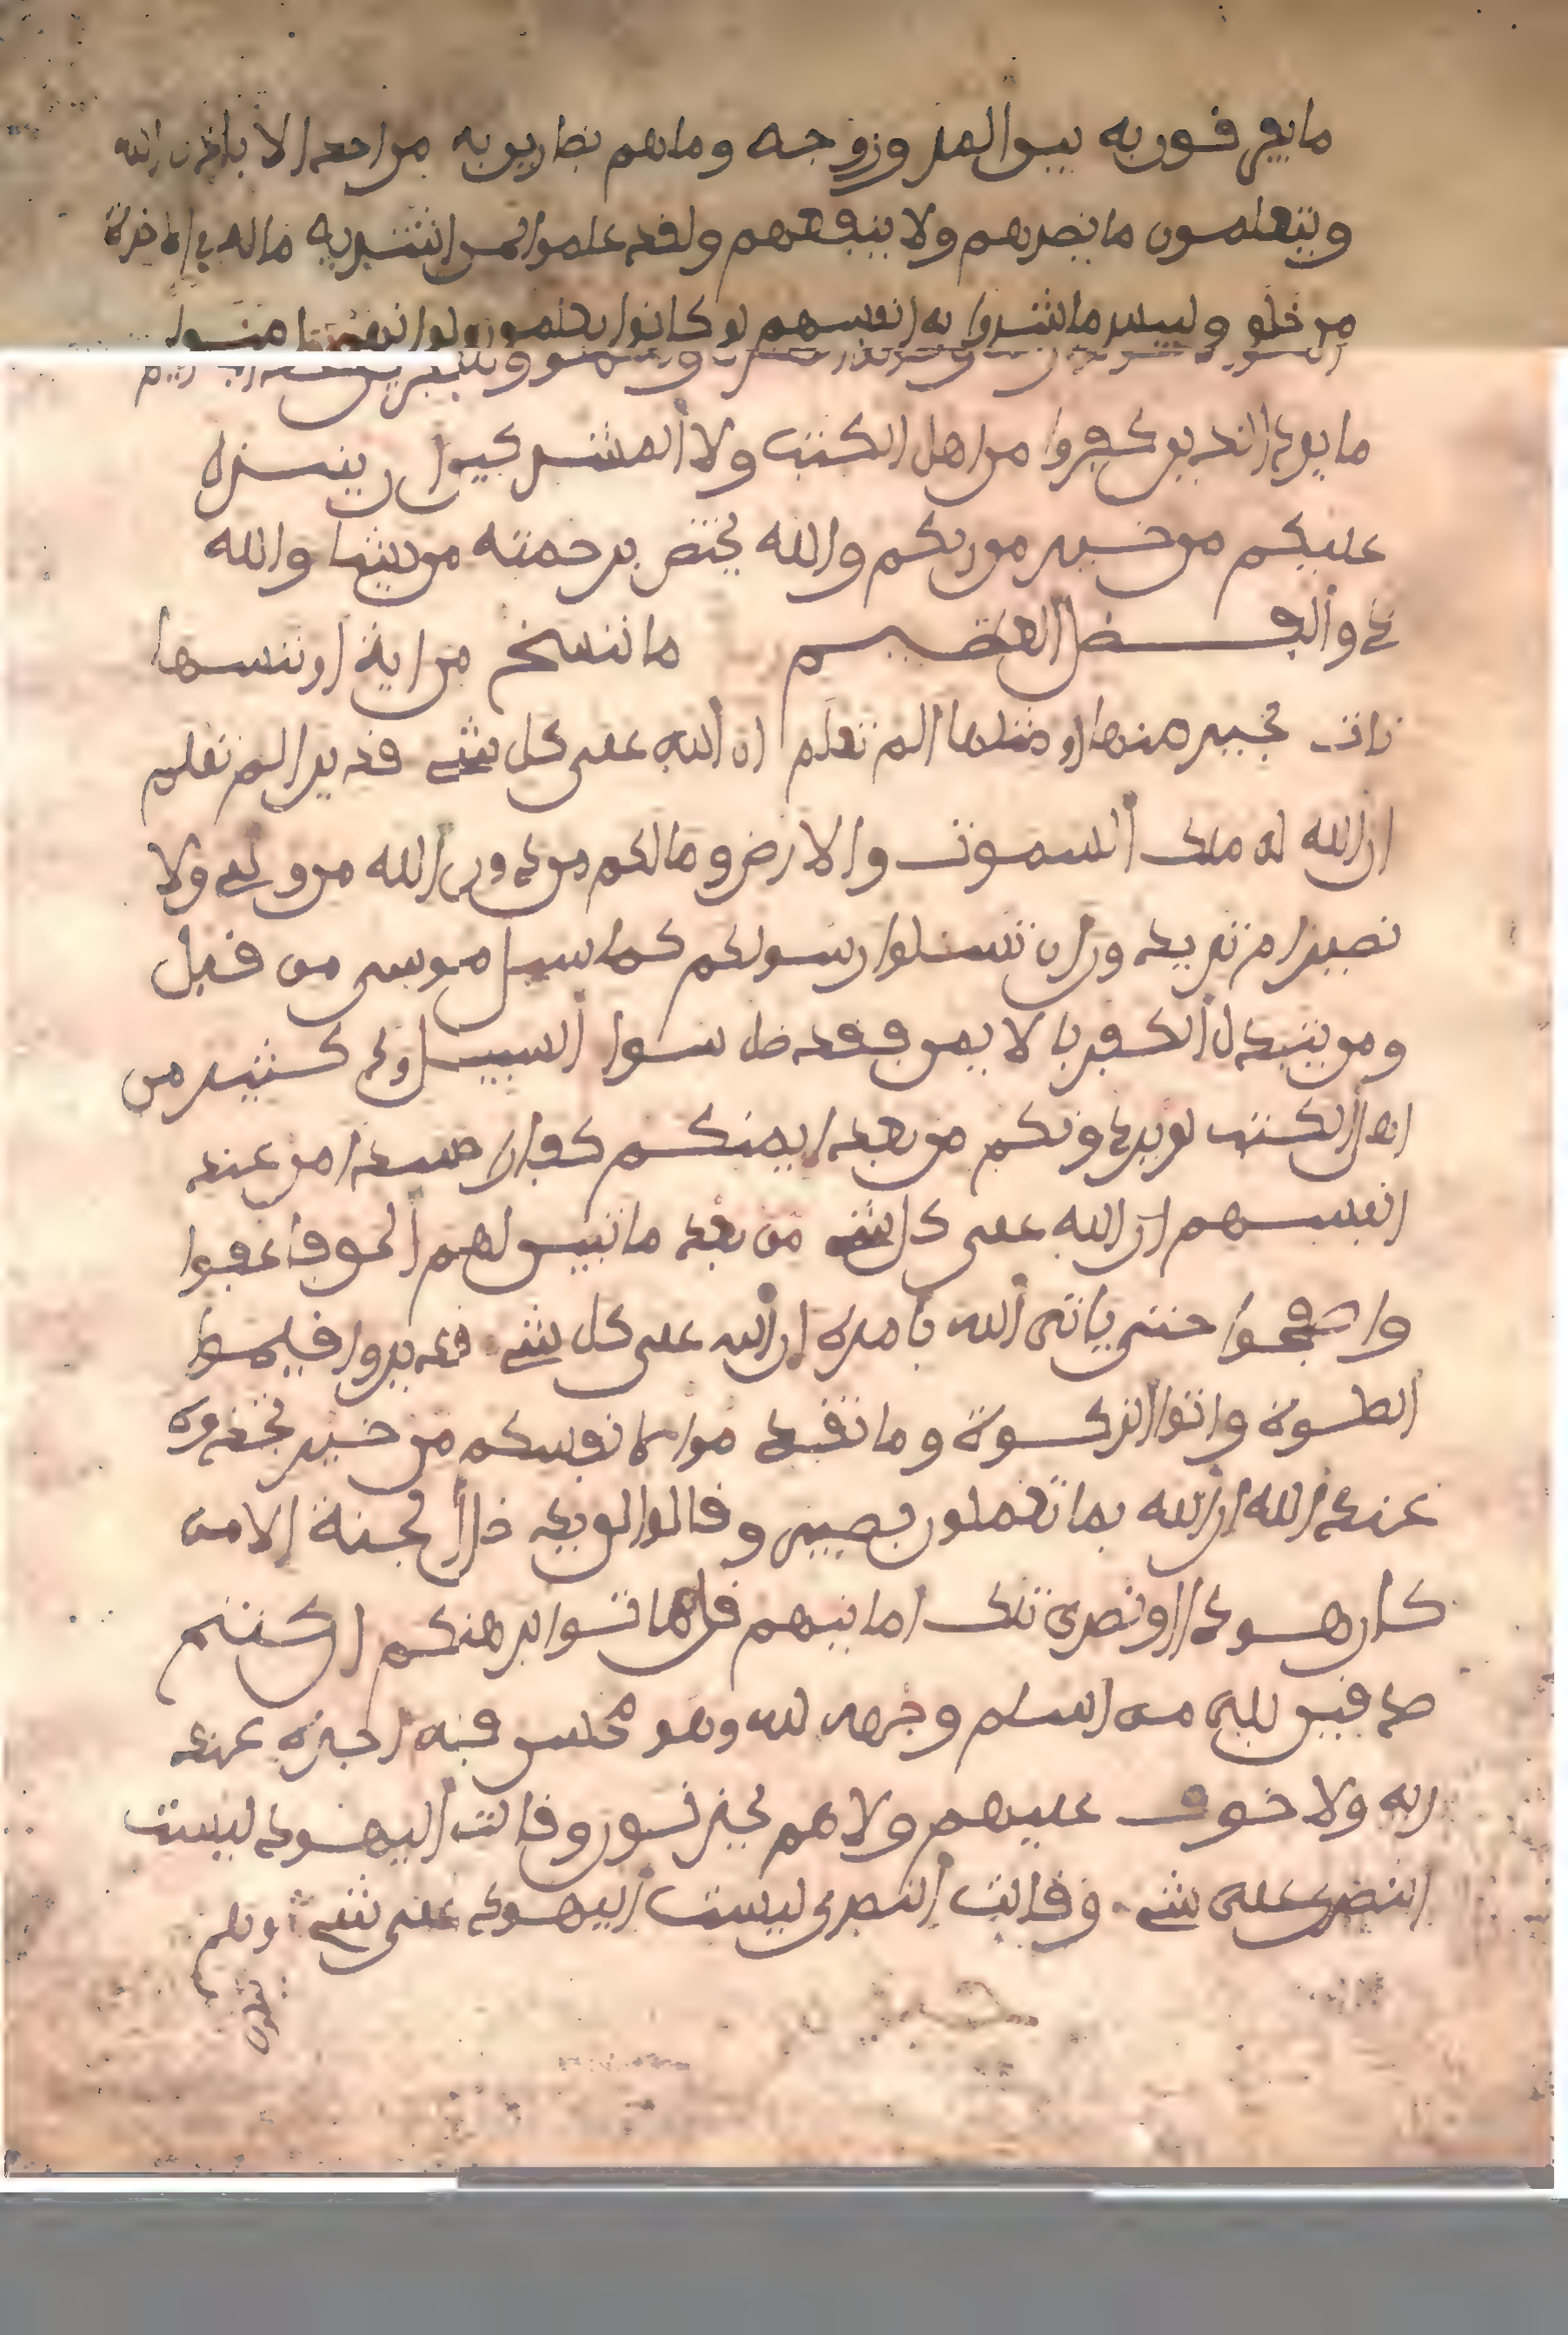 ما يفرقون به بين المر وزوجه وما هم بضارين به من احد الا باذن الله
ويتعلمون ما يضرهم ولا ينفعهم ولقد علموا لمن اشتريه ماله في الاخرة
من خلق ولبيس ما شروا به انفسهم لو كانوا يعلمون ولو انهم امنوا
ما يود الذين كفروا من اهل الكتب ولا المشركين ان ينزل
عليكم من خير من ربكم والله يختص برحمته من يشا والله
ذو الفضل العظيم ما ننسخ من اية او ننسها
نات بخير منها او مثلها الم تعلم ان الله على كل شي قدير الم تعلم
ان الله له ملك السموت والارض وما لكم من دون الله من ولي ولا
نصير ام تريد ون ان تسلوا رسولكم كما سيل موسى من قبل
ومن يتبدل الكفر بالايمن فقد ضل سوا السبيل ود كثير من
اهل الكتب لو يردونكم من بعد ايمنكم كفارا حسدا من عند
انفسهم ان الله على كل شي من بعد ما تبين لهم الحق فاعفوا
واصفحوا حتى ياتى الله بامره ان الله على كل شي قدير واقيموا
الصلوة واتوا الزكوة وما تقد موا لانفسكم من خير تجدوه
عند الله ان الله بما تعملون بصير وقالوا لن يد خل الجنة الا من
كان هودا او نصرى تلك امانيهم قل هاتوا برهنكم ان كنتم
صدقين بلى من اسلم وجهه لله وهو محسن فله اجره عند
ربه ولا خوف عليهم ولا هم يحزنون وقالت اليهود ليست
النصرى على شي وقالت النصرى ليست اليهود على شي وهم
يتلون